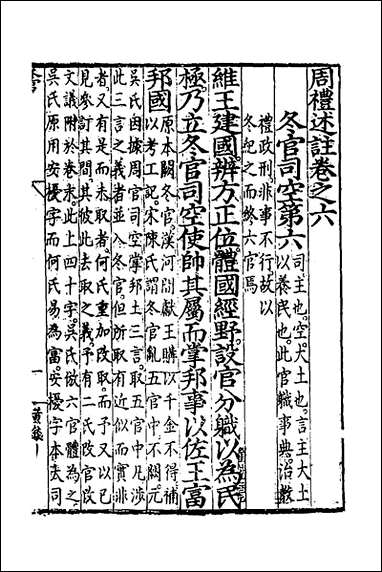 周禮述註卷之六
冬官司空第六 司主也空大土也言主大土
以養民也此官職事典治教
禮政刑非事不行故以
冬起之而終六官焉
維王建國辨方正位體國經野設官分職以為民
極乃立冬官司空使帥其屬而掌邦事以佐王富
邦國 原本闕冬官漢河間獻王購以千金不得補
以考工記宋陳氏謂冬官亂五官中不闕元
吳氏因據周官司空掌邦土三言取五官中凡涉
此三言之義者並入冬官但所取有近似而實非
者又有是而未取者何氏重加改取而予又以已
見參訂其間其彼此去取之義予有二氏改官改
文議附於卷末此上四十字吳氏倣六官體為之
吳氏原用安擾字而何氏易為富安擾字本去司